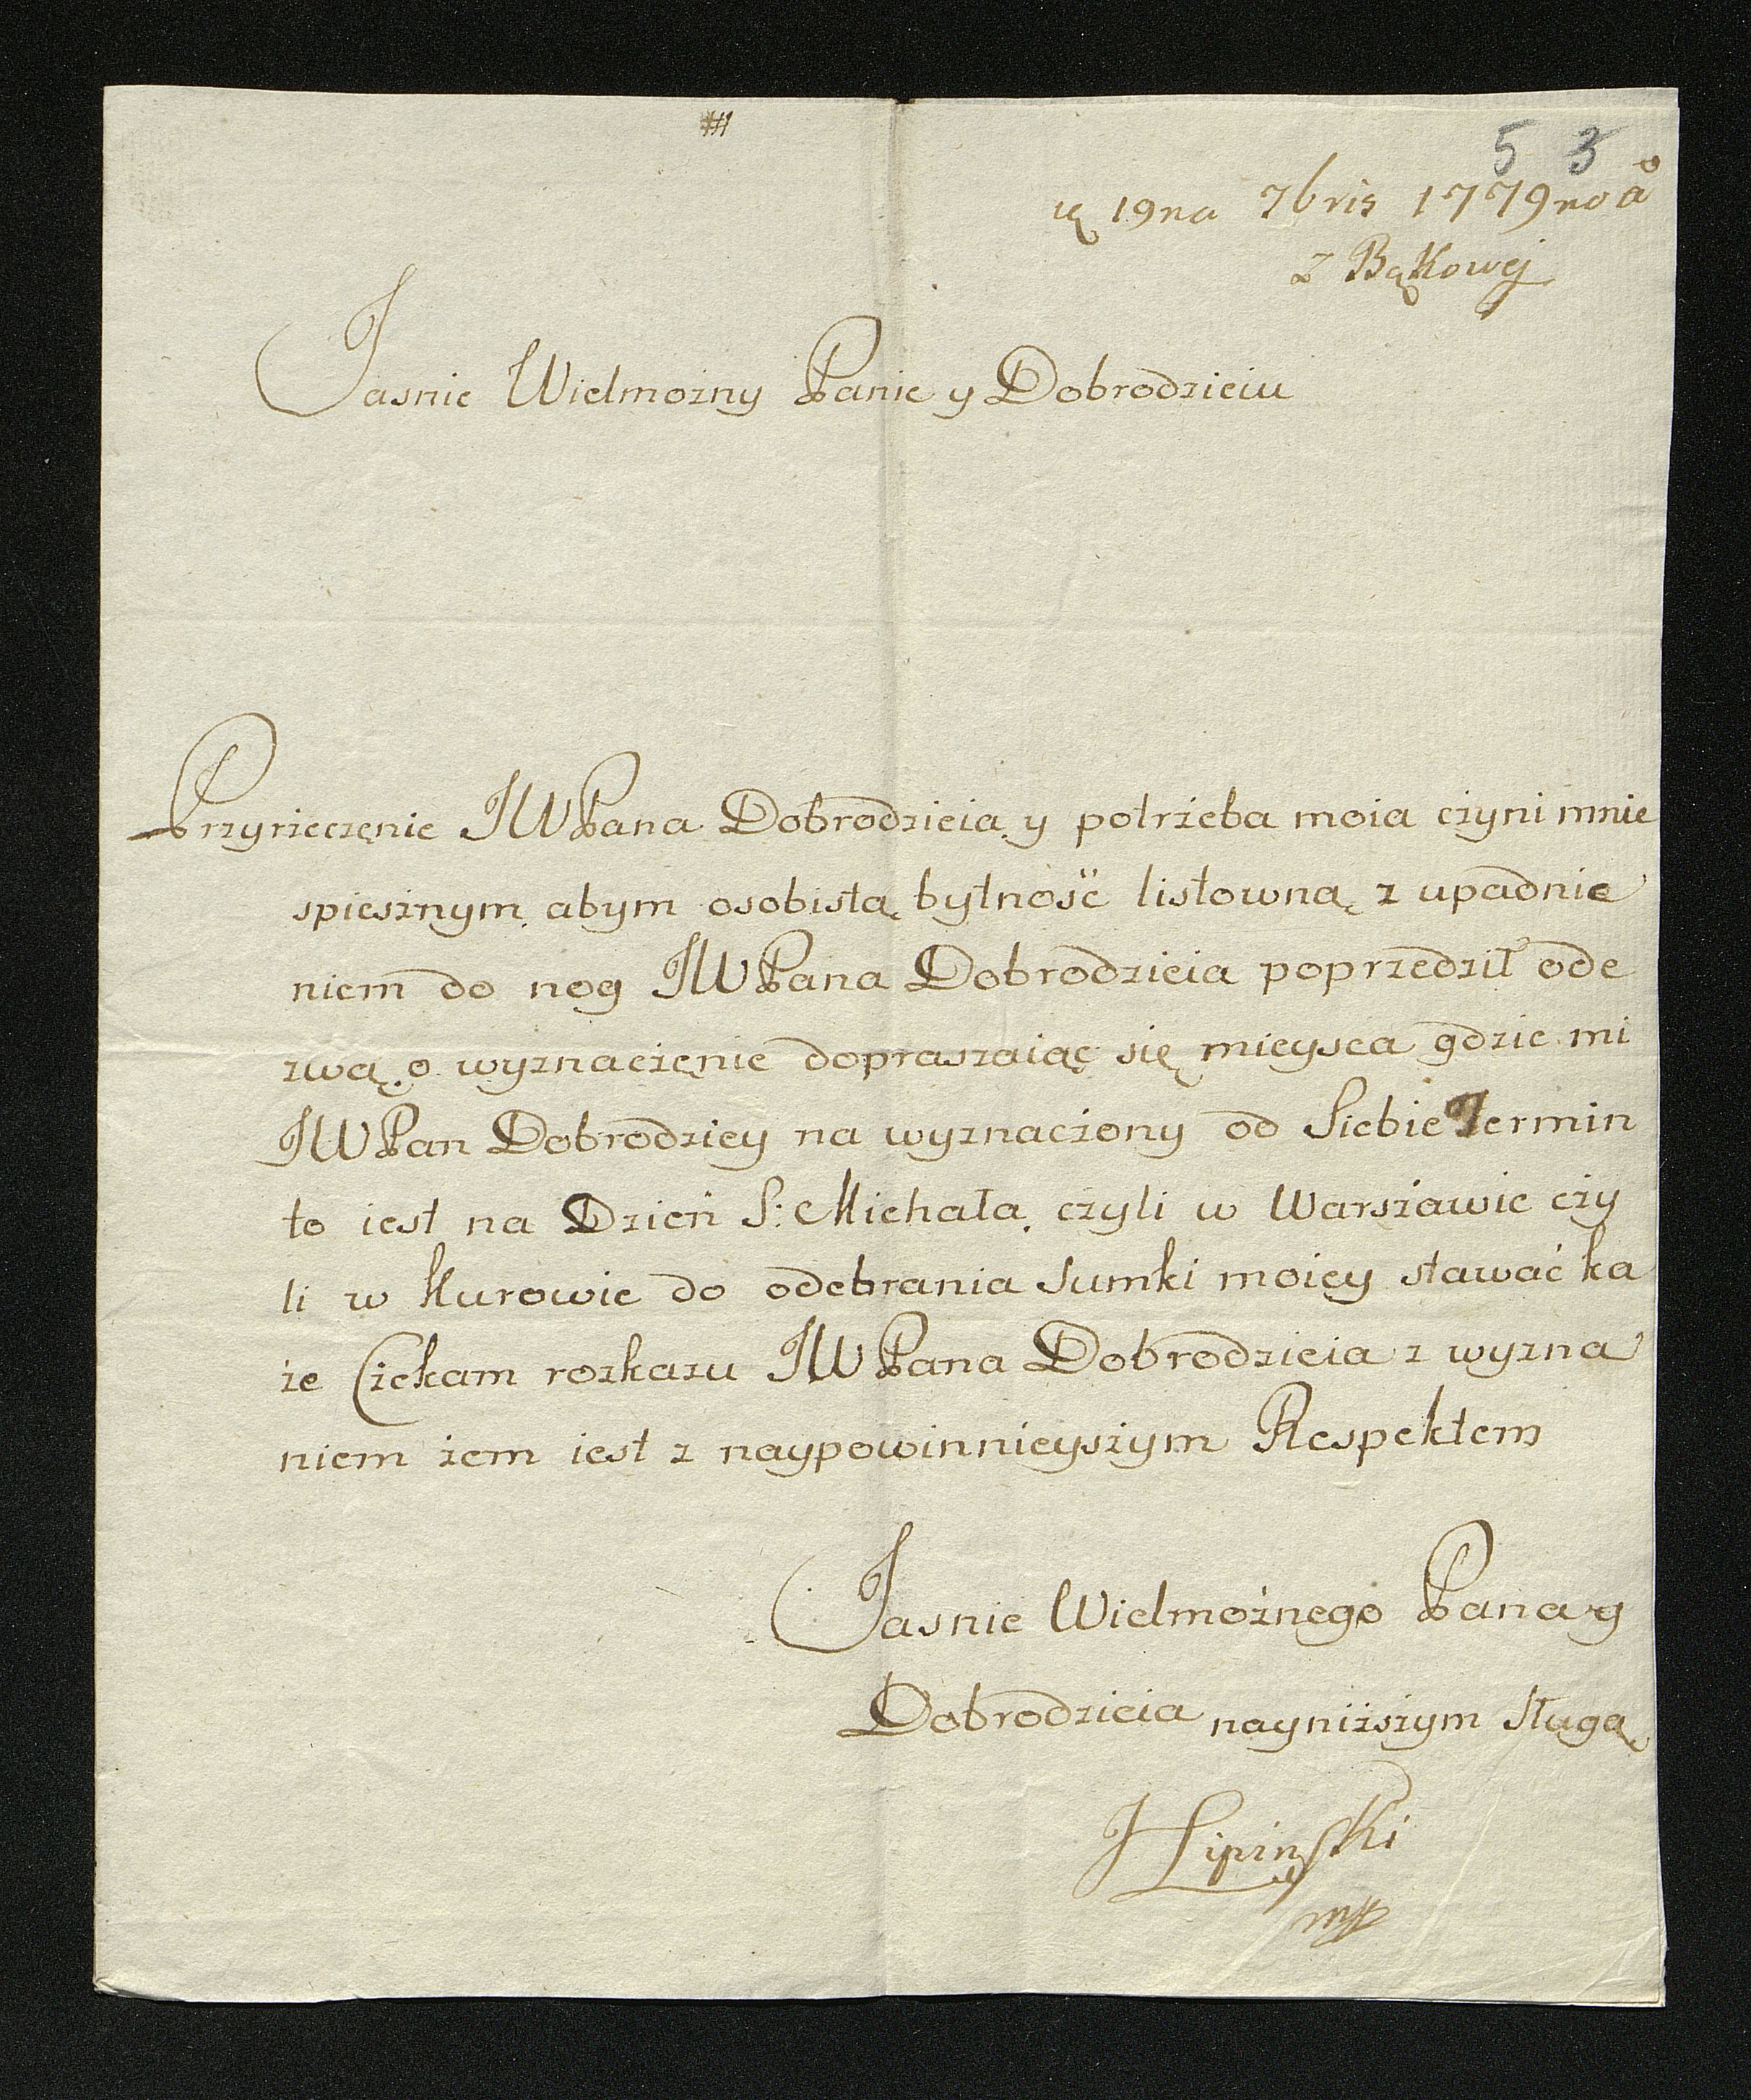 5 3
19na 7bris 1779no
z Bąkowej
Jasnie Wielmozny Panie y Dobrodzieiu
Przyrzeczęnie JWPana Dobrodzieia y potrżeba moia cżyni mnie
spiesznym abym osobistą bytność listowną z upadnie
niem do nog JWPana Dobrodzieia poprzedził ode
zwą o wyznacżęnie dopraszaiąc się mieysca gdzie mi
JWPan Dobrodziey na wyznacżony od Siebie Termin
to iest na Dzień S: Michała czyli w Warszawie cży
li w Kurowie do odebrania Sumki moiey stawać ka
że Cżekam rozkazu JWPana Dobrodzieia z wyzna
niem żem iest z naypowinnieyszym Respektem
Jasnie Wielmożnego Pana y
Dobrodzieia nayniższym Sługą
J Lipinski
mp